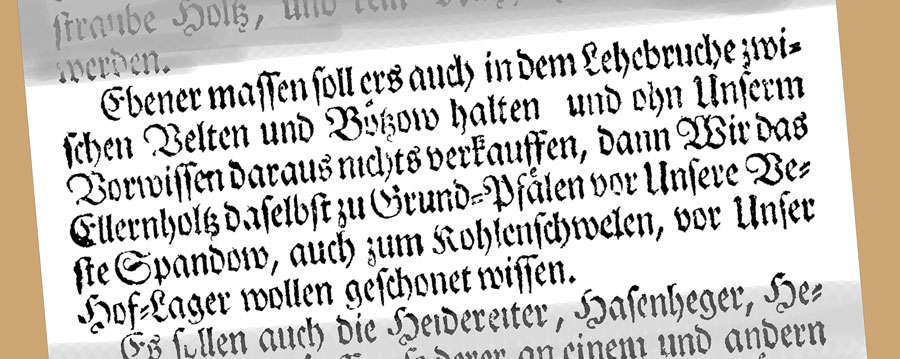 straube Holtz, und
werden.
Ebener massen soll ers auch in dem Lehebruche zwi⸗
schen Velten und Bötzow halten und ohn Unserm
Vorwissen daraus nichts verkauffen, dann Wir das
Ellernholtz daselbst zu Grund⸗Pfälen vor Unsere Ve⸗
ste Spandow, auch zum Kohlenschwelen, vor Unser
Hof⸗Lager wollen geschonet wissen.
Es sollen auch die Heidereiter, Hasenheger, He⸗
an einem und andern